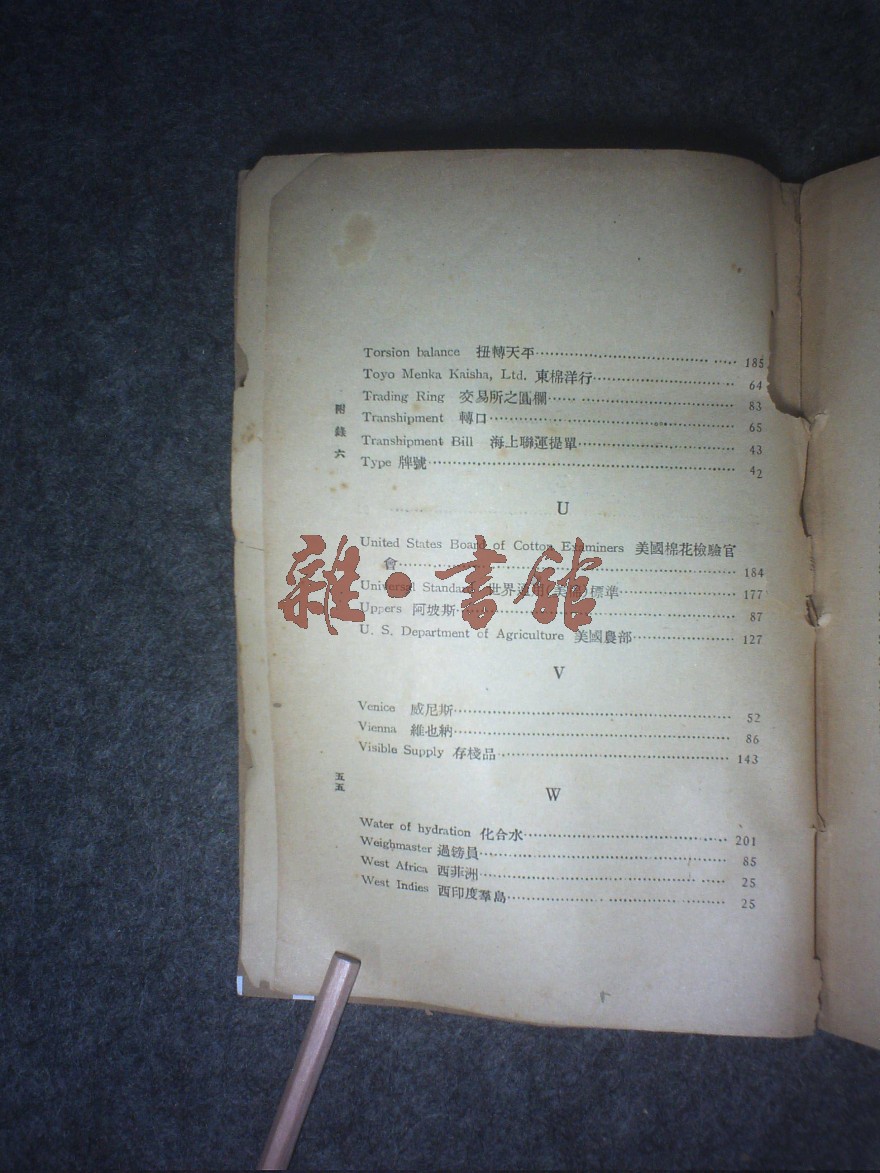 Torsion balance 扭轉天平 185
Toyo Menka Kaisha, Ltd. 東棉洋行 64
Trading Ring 交易所之圓欄 83
Transhipment 轉口 65
Transhipment Bill 海上聯運提單 43
Type 牌號 42
附錄六
U
United States Board of Cotton Examiners 美國棉花檢驗官
會 184
Universal Standard 世界通用(美棉)標準 177
Uppers 阿坡斯 87
U. S. Department of Agriculture 美國農部 127
V
Venice 威尼斯 52
Vienna 維也納 86
Visible Supply 存棧品 143
五五
W
Water of hydration 化合水 201
Weighmaster 過镑員 85
West Africa 西非洲 25
West Indies 西印度羣島 25
雜·書館